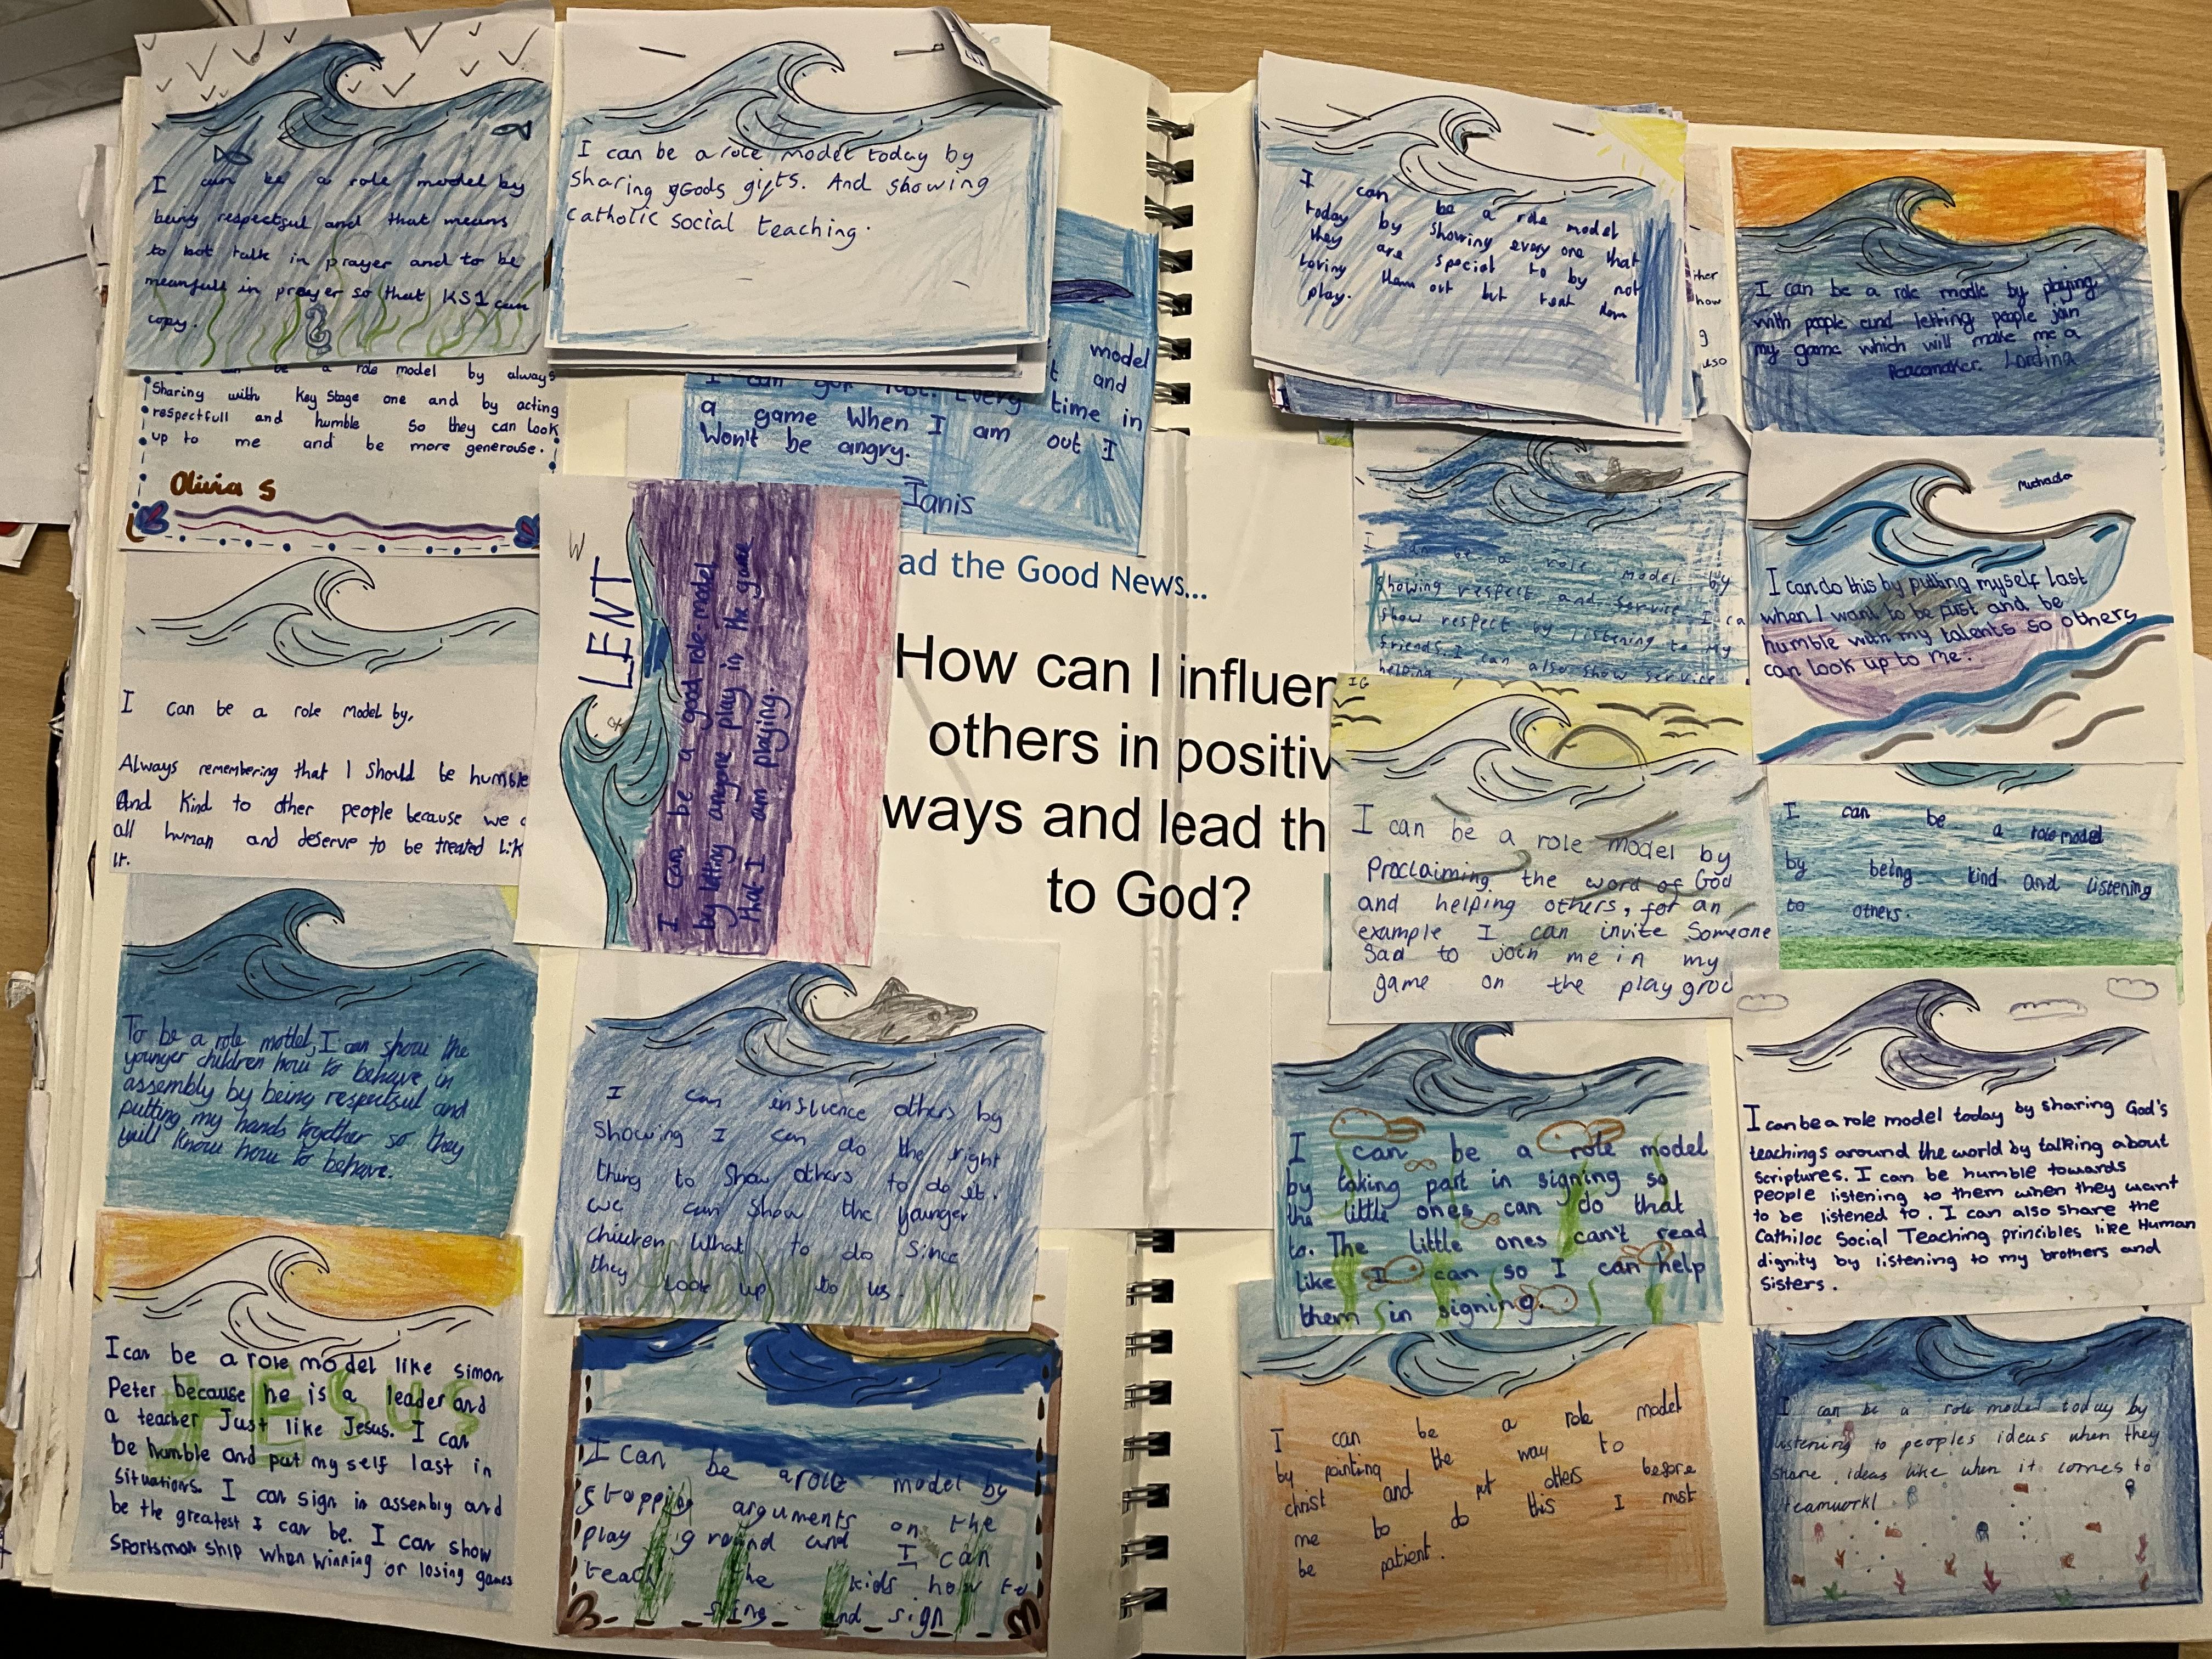 I can be a role model by
being respectsul and that means
to not talk in prayer and to be
meanfull in prayer so that KS1 can
copy.
be a role model by always
Sharing with Key Stage one and by acting
respectfull and humble so they can look
up to me and be more generouse.
Olivia S
I can be a role model by,
Always remembering that I Should be humble
And Kind to other people because we
all human and deserve to be treated Lik
it.
To be a role mottel, I can show the
younger children how to behave in
assembly by being respectsul and
putting my hands together so they
will know how to behave.
JESUS
I can be a role model like simon
Peter because he is a leader and
a teacher Just like Jesus. I can
be humble and put my self last in
situations. I can sign in assembly and
be the greatest I can be. I can show
Sportsman ship when winning or losing games
I can be a role model today by
sharing Gods gifts. And showing
catholic social teaching.
model
and
Every time in
a game When I am out I
Won't be angry.
Ianis
LENT
I can be a good role-model
by letting anyone play in the game
that I am playing
ad the Good News...
How can I influen
others in positiv
ways and lead th
to God?
I can insluence others by
Showing I can do the right
thing to show others to do it.
we can show the younger
children What to do Since
they look up to us.
I can be a role model by
stopping arguments on the
play ground and I can
teach the kids how to
sing and sign
I can be a role model
today by showing every one that
they are special to by not
them out but
play.
I can be a role modle by playing
with people and letting people join
my game which will make me a
Peacemaker.
I can be a role model by
showing respect and service. I ca
show respect by listening to my
friends. I can also show service
helping
I can do this by putting myself last
when I want to be first and be
humble with my talents so others
can look up to me.
IG
I can be a role model by
Proclaiming the word of God
and helping others, for an
example I can invite Someone
Sad to join me in my
game on the playgrod
I can be a role model
by being kind and listening
to others.
I can be a role model
by taking part in signing so
the little ones can do that
to. The little ones can't read
like I can so I can help
them in signing.
I can be a role model today by sharing God's
teachings around the world by talking about
Scriptures. I can be humble towards
people listening to them when they want
to be listened to. I can also share the
Catholoc Social Teaching princibles like Human
dignity by listening to my brothers and
Sisters.
I can be a role model
by pointing the way to
christ and put others besore
me to do this I must
be patient.
I can be a role model today by
listening to peoples ideas when they
share ideas like when it comes to
teamwork!